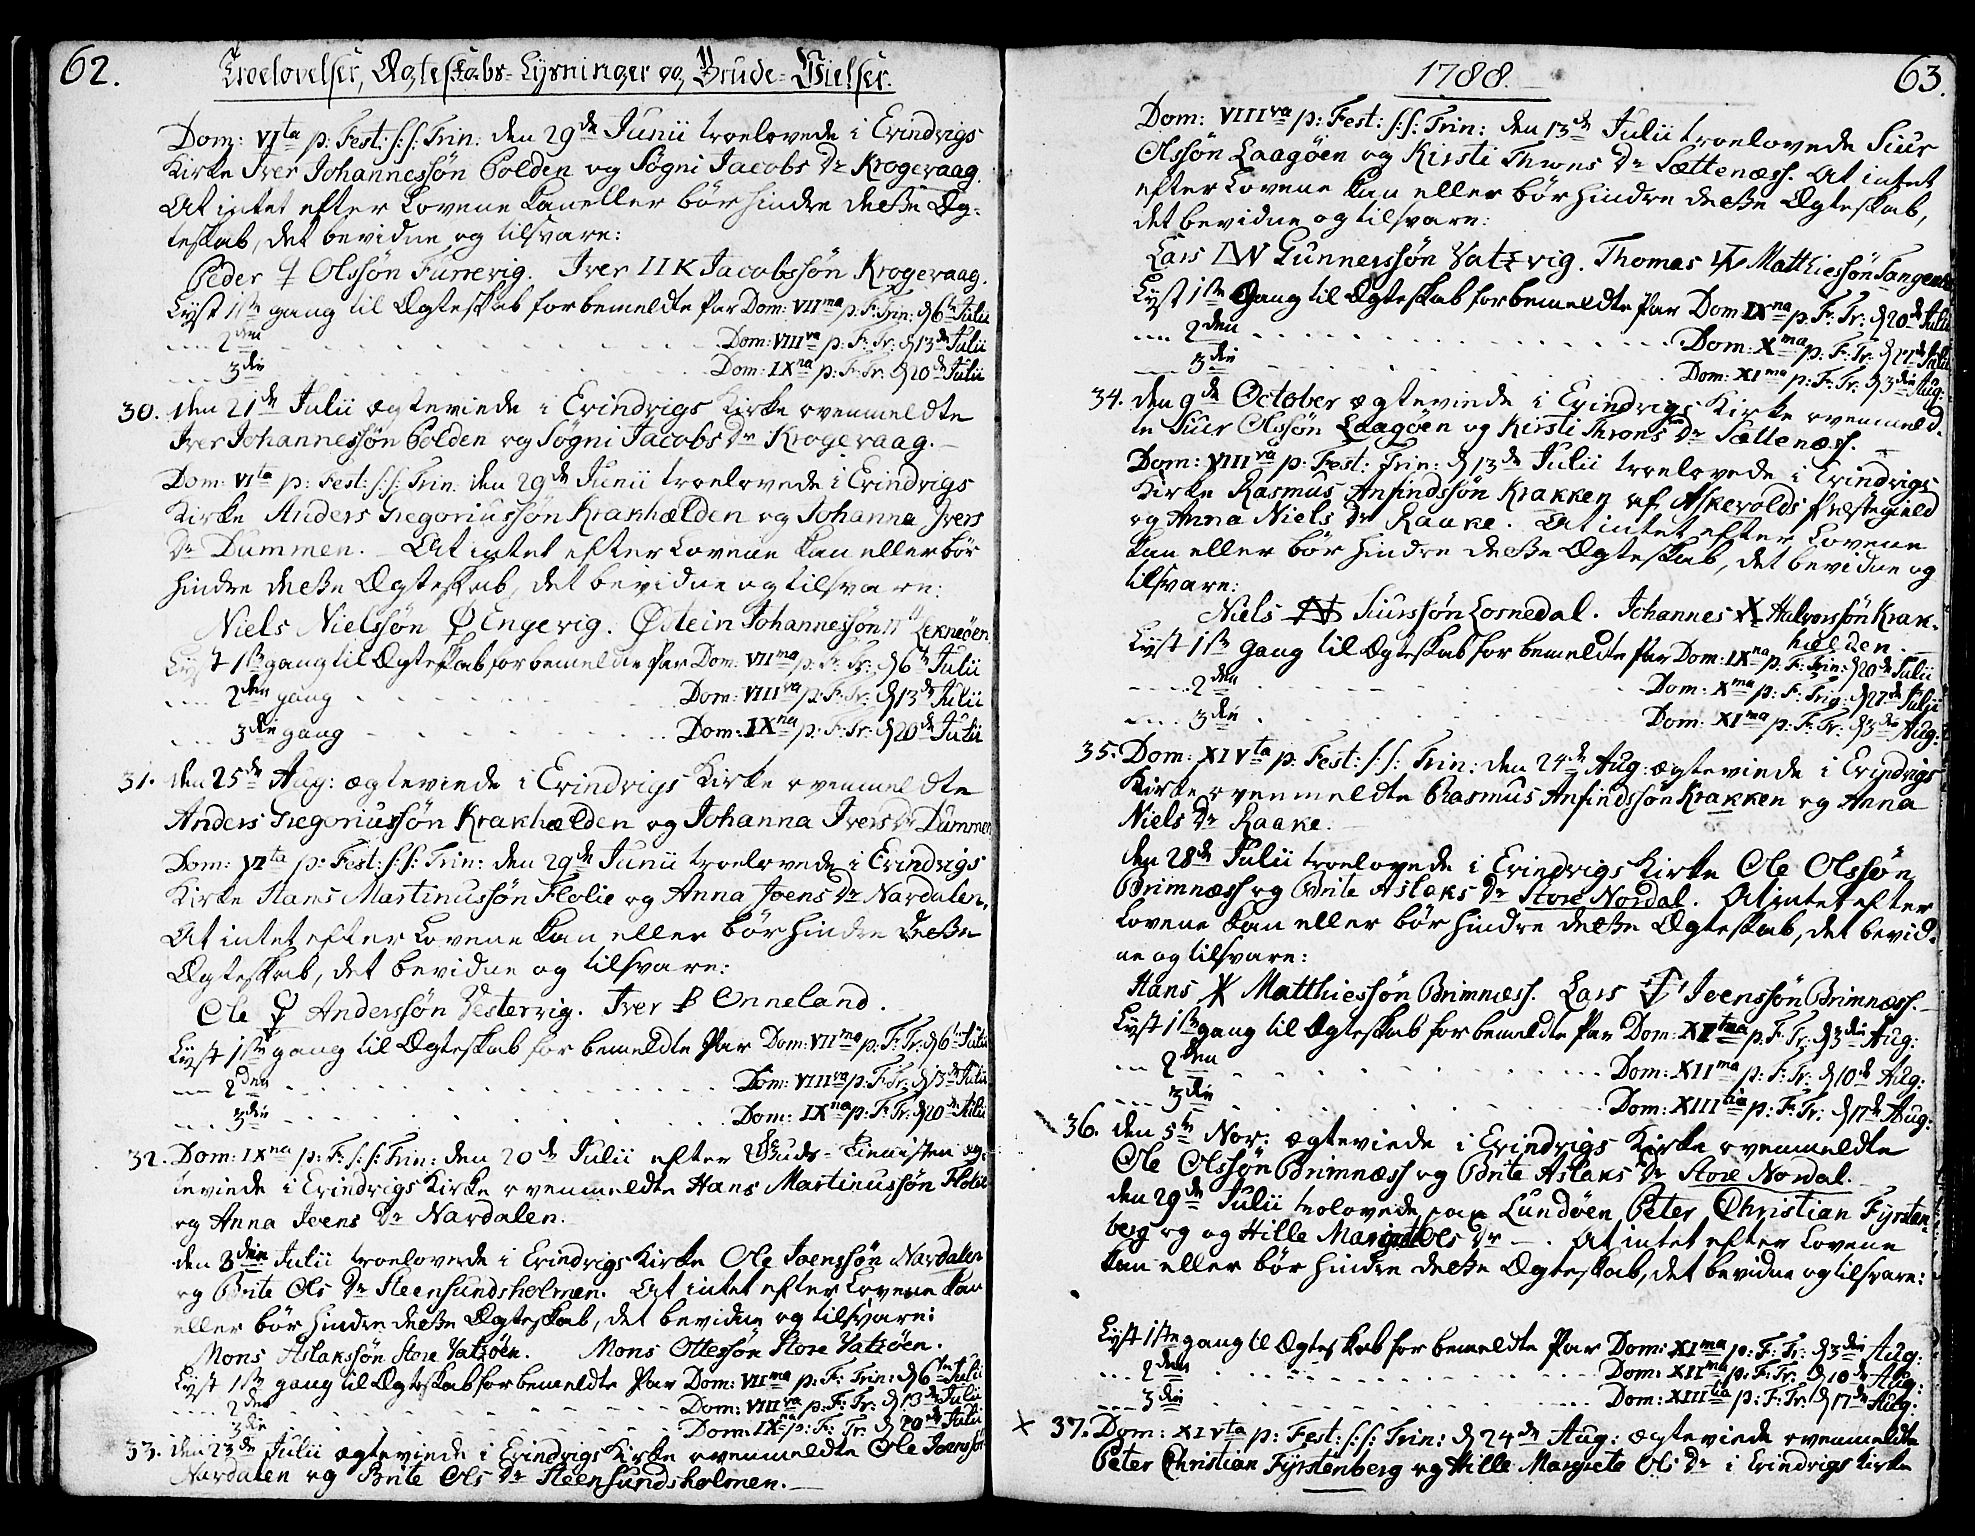 62.
Troelovelser, Ægteskabs-Lysninger og Brude-Vielser.
Dom: VIta p: Fest: s: s: Trin: den 29de Junii troelovede i Evindvigs
Kirke Iver Johannessön Polden og Sögni Jacobs Dr Krogevaag.
At intet efter Lovene kan eller bör hindre deße Æg-
teskab, det bevidne og tilsvare:
Peder Olssön Furrevig. Iver IIK Jacobssön Krogevaag.
Lyst 1ste gang til Ægteskab for bemeldte Par Dom: VIIma p: F: Trin: d 6te Julii
.... 2den Dom: VIIIva p: F: Tr: d 13de Julii
.... 3die Dom: IXna p: F: Tr: d 20de Julii
30. den 21de Julii ægteviede i Evindvigs Kirke ovenmeldte
Iver Johannessön Polden og Sögni Jacobs Dr Krogevaag.
Dom: VIta p: Fest: s: s: Trin: den 29de Junii troelovede i Evindvigs
Kirke Anders Gregoriussön Krakhælden og Johanna Ivers
Dr Dummen. At intet efter Lovene kan eller bör
hindre deße Ægteskab, det bevidne og tilsvare:
Niels Nielssön Engevig. Østein Johannessön Lekneöen
Lyst 1ste gang til Ægteskab for bemeldte Par Dom: VIIma p: F: Tr: d 6te Julii
.... 2den gang Dom: VIIIva p: F: Tr: d 13de Julii
.... 3die gang Dom: IXna p: F: Tr: d 20de Julii
31. den 25de Aug: ægteviede i Evindvigs Kirke ovenmeldte
Anders Gregoriussön Krakhælden og Johanna Ivers Dr Dummen
Dom: VIta p: Fest: s: s: Trin: den 29de Junii troelovede i Evindvigs
Kirke Hans Martinussön Flolie og Anna Joens Dr Nardalen.
At intet efter Lovene kan eller bör hindre deße
Ægteskab, det bevidne og tilsvare:
Ole Anderssön Vestervig. Iver Onneland.
Lyst 1ste gang til Ægteskab for bemeldte Par Dom: VIIma p: F: Tr: d 6te Julii
.... 2den Dom: VIIIva p: F: Tr: d 13de Julii
.... 3die Dom: IXna p: F: Tr: d 20de Julii
32. Dom: IXna p: F: s: s: Trin: den 20de Julii efter Guds-Tienisten æg-
teviede i Evindvigs Kirke ovenmeldte Hans Martinussön Flolie
og Anna Joens Dr Nardalen.
den 3die Julii troelovede i Evindvigs Kirke Ole Joenssön Nardalen
og Brite Ols Dr Steensundsholmen. At intet efter Lovene kan
eller bör hindre deße Ægteskab, det bevidne og tilsvare:
Mons Aslakssön Store Vatzöen. Mons Ottessön Store Vatzöen.
Lyst 1ste gang til Ægteskab for bemeldte Par Dom: VIIma p: F: Trin: d 6te Julii
.... 2den Dom: VIIIva p: F: Tr: d 13de Julii
.... 3die Dom: IXna p: F: Tr: d 20de Julii
33. den 23de Julii ægteviede i Evindvigs Kirke ovenmeldte Ole Joenssön
Nardalen og Brite Ols Dr Steensundsholmen.
1788.
63.
Dom: VIIIva p: Fest: s: s: Trin: den 13de Julii troelovede Siur
Olssön Laagöen og Kirsti Throns Dr Sættenæss. At intet
efter Lovene kan eller bör hindre deße Ægteskab,
det bevidne og tilsvare:
Lars Gunnerssön Vatzvig. Thomas Matthiessön Tangen
Lyst 1ste Gang til Ægteskab for bemeldte Par Dom IXna p: F: Tr: d 20de Julii
.... 2den Dom: Xma p: F: Tr: d 27de Julii
.... 3die Dom: XIma p: F: Tr: d 3die Aug:
34. den 9de October ægteviede i Evindvigs Kirke ovenmeld-
te Siur Olssön Laagöen og Kirsti Throns Dr Sættenæss.
Dom: VIIIva p: Fest: Trin: d 13de Julii troelovede i Evindvigs
Kirke Rasmus Anfindssön Krakken af Askevolds Præstegield
og Anna Niels Dr Raake. At intet efter Lovene
kan eller bör hindre deße Ægteskab, det bevidne og
tilsvare:
Niels Siurssön Losnedal. Johannes Halvorssön Krak-
hælden.
Lyst 1ste Gang til Ægteskab for bemeldte Par Dom: IXna p: F: Trin: d 20de Julii
.... 2den Dom: Xma p: F: Trin: d 27de Julii
.... 3die Dom: XIma p: F: Tr: d 3die Aug:
35. Dom: XIVta p: Fest: s: s: Trin: den 24de Aug: ægteviede i Evindvigs
Kirke ovenmeldte Rasmus Anfindssön Krakken og Anna
Niels Dr Raake.
den 28de Julii troelovede i Evindvigs Kirke Ole Olssön
Brimnæss og Brite Aslaks Dr Store Nordal. At intet efter
Lovene kan eller bör hindre deße Ægteskab, det bevid-
ne og tilsvare:
Hans Matthiessön Brimnæss. Lars Joenssön Brimnæss.
Lyst 1ste gang til Ægteskab for bemeldte Par Dom: XIma p: F: Tr: d 3die Aug:
.... 2den Dom: XIIma p: F: Tr: d 10de Aug:
.... 3die Dom: XIIItia p: F: Tr: d 17de Aug:
36. den 5te Nov: ægteviede i Evindvigs Kirke ovenmeldte
Ole Olssön Brimnæss og Brite Aslaks Dr Store Nordal.
den 29de Julii trolovede paa Lundöen Peter Christian Fyrsten-
berg og og Hille Margrete Ols Dr —. At intet efter Lovene
kan eller bör hindre deße Ægteskab, det bevidne og tilsvare:
Lyst 1ste gang til Ægteskab for bemeldte Par Dom: XIma p: F: Tr: d 3die Aug:
.... 2den Dom: XIIma p: F: Tr: d 10de Aug:
.... 3die Dom: XIIItia p: F: Tr: d 17de Aug:
x 37. Dom: XIVta p: Fest: s: s: Trin: d 24de Aug: ægteviede ovenmeldte
Peter Christian Fyrstenberg og Hille Margrete Ols Dr i Evindvigs Kirke